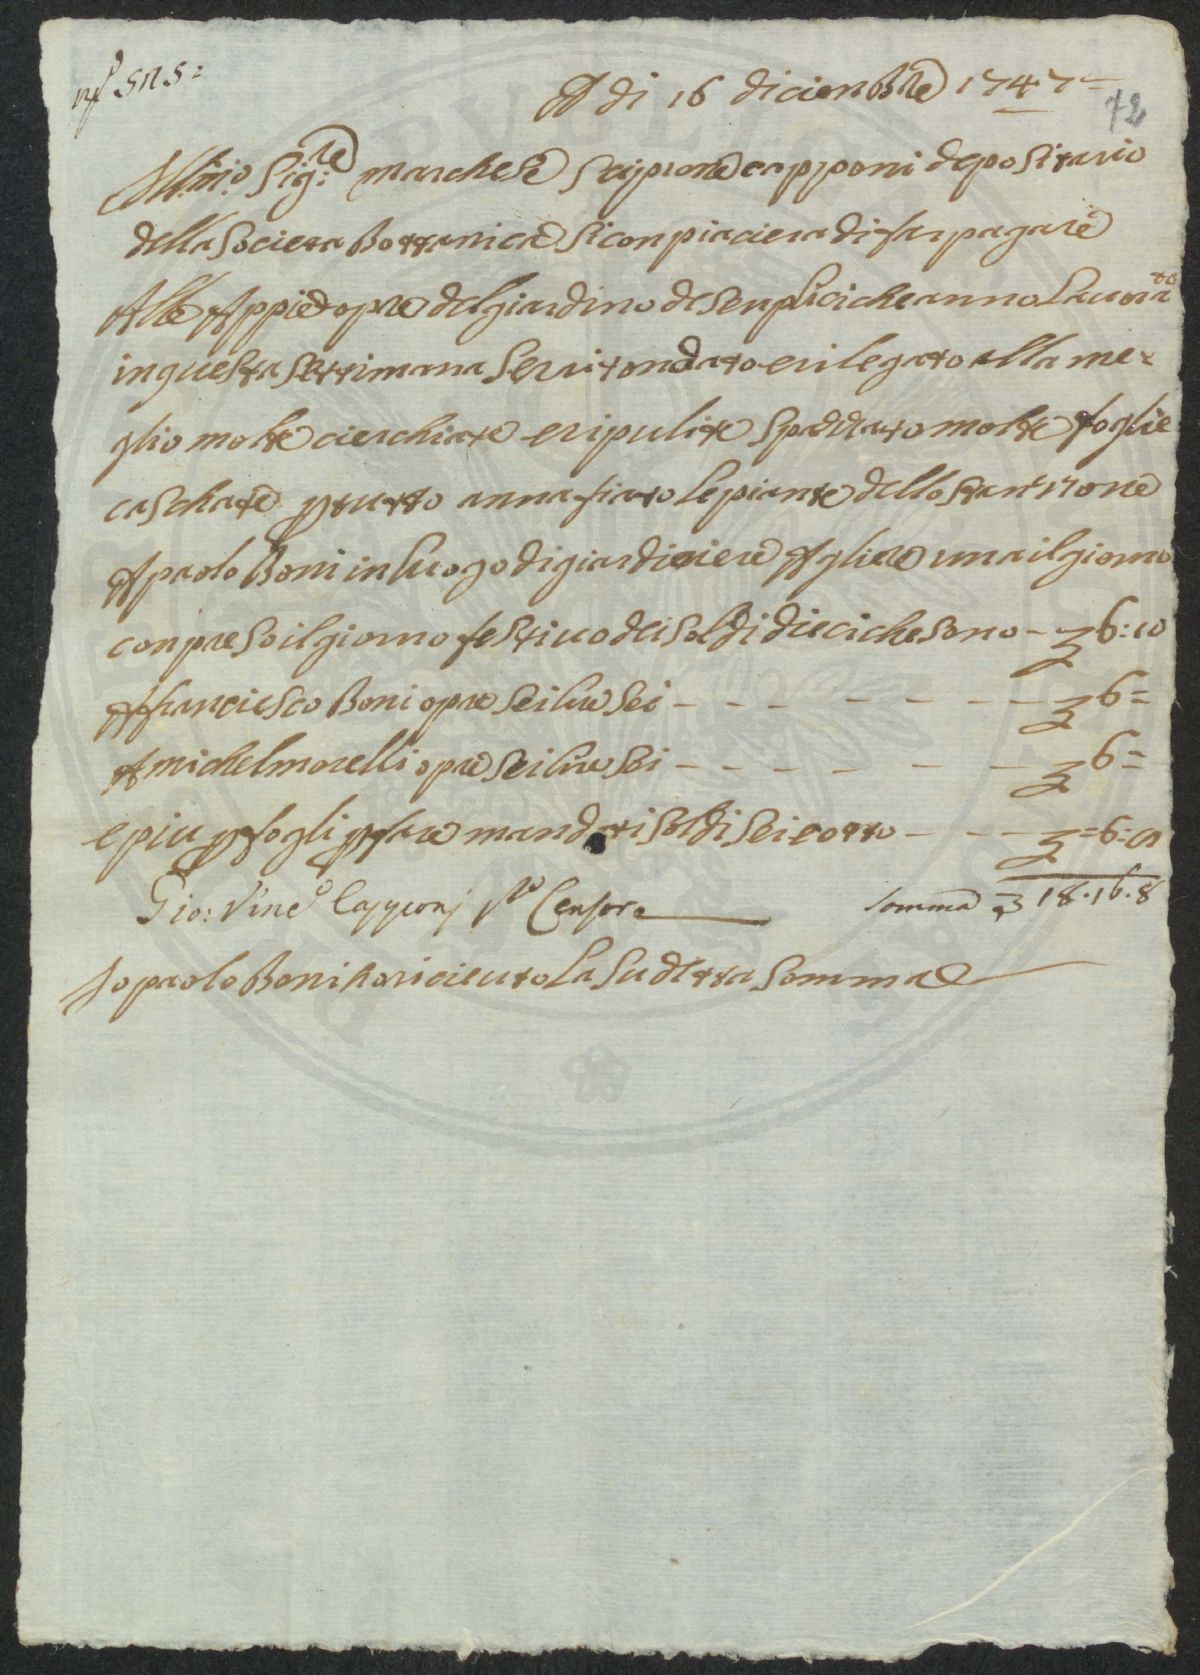 A di 16 dicienbre 1747
72
Ill:mo Sig:re marchese Scipione capponi depositario
della Societa Bottanica Si conpiaciera di far pagare
Alle Appie opre del giardino de Senplici che anno Lavorato
in questa Settimana Servi tondato e rilegato alla me-
glio molte cierchiate e ripulite Spazzato molte foglie
caschate p tutto annafiato Le piante dello stanzione
A paolo Boni in Luogo di giardiniere A lire una il giorno
conpreso il giorno festivo de i soldi dieci che sono - 6:10
A franciesco Boni opre Sei lire Sei - - - - - - 6=
A michel morelli opre Sei lire Sei - - - - - - 6=
e piu p fogli p fare mandati soldi Sei e otto - - - =6:8
Gio: Vinc:o Capponj P:o Censore
somma 18.16.8
Io paolo Boni ho ricieuto La Sudetta Somma